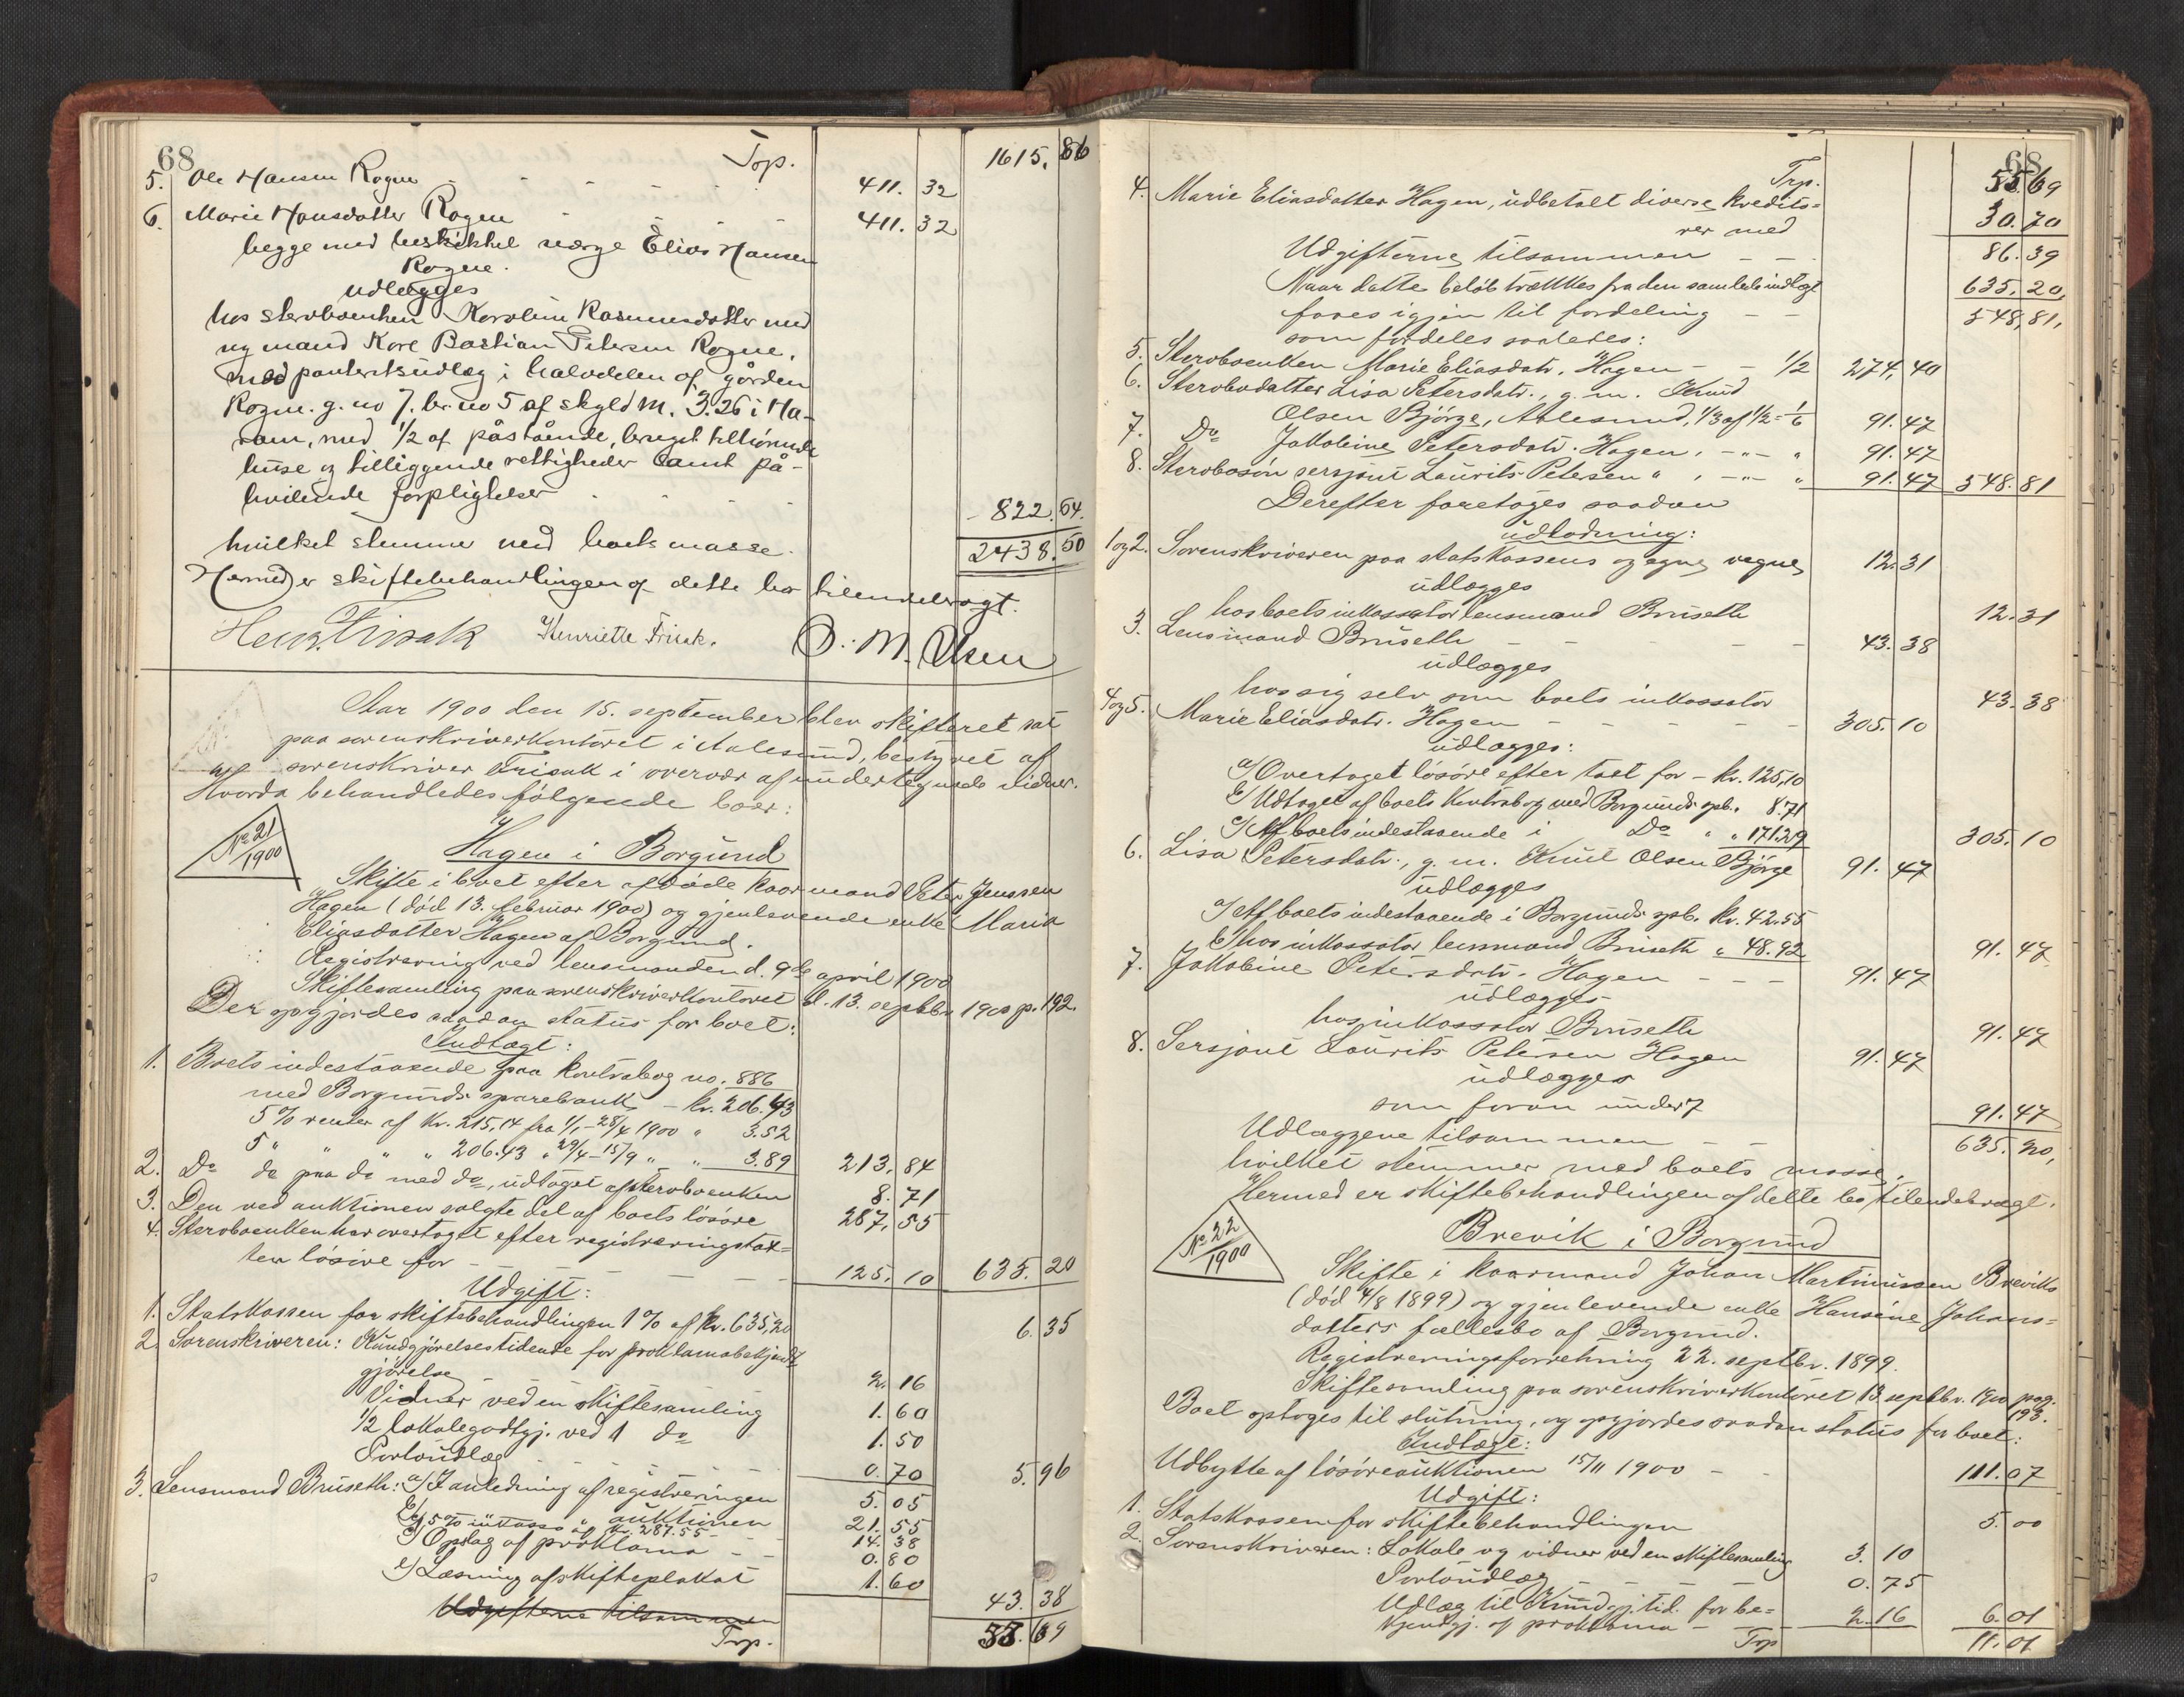 68
Trp. 1615. 86
5. Ole Hansen Rogne - - - - 411. 32
6. Marie Hansdatter Rogne - - - 411. 32
begge med beskikket værge Elias Hansen
Rogne.
udlægges
hos sterboenken Karoline Rasmusdatter med
ny mand Kare Bastian Petersen Rogne,
med panteretsudlæg i halvdelen af gården
Rogne. g. no 7. br. no 5 af skyld M. 3.26 i Ha-
ram, med 1/2 af påstående, bruget tilhørende
huse og tilliggende rettigheder samt på-
hvilende forpligtelser - - - 822. 64.
hvilket stemmer med boets masse. 2438. 50
Hermed er skiftebehandlingen af dette bo tilendebragt.
Henr. Frisak Henriette Frisak. O. M. Olsen
Aar 1900 den 15. september blev skifteret sat
paa sorenskriverkontoret i Aalesund, bestyret af
sorenskriver Frisak i overvær af undertegnede vidner.
Hvorda behandledes følgende boer:
No 21/1900
Hagen i Borgund
Skifte i boet efter afdøde kaarmand Peter Jenssen
Hagen (død 13. februar 1900) og gjenlevende enke Maria
Eliasdatter Hagen af Borgund.
Registrering ved lensmanden d. 9de april 1900
Skiftesamling paa sorenskriverkontoret d. 13. septbr. 1900 p. 192.
Der opgjordes saadan status for boet:
Indtægt:
1. Boets indestaaende paa kontrabog no. 886
med Borgunds sparebank - kr. 206.43
5 % renter af kr. 215,14 fra 1/1 - 28/4 1900 " 3.52
5 " " " " 206.43 " 29/4 - 15/9 " " 3.89 213. 84
2. Do do paa do med do, udtaget af sterboenken 8. 71
3. Den ved auktionen solgte del af boets løsøre 287. 55
4. Sterboenken har overtaget efter registreringstax-
ten løsøre for - - - - - - 125. 10 635. 20
Udgift:
1. Statskassen for skiftebehandlingen 1 % af kr. 635,20 6. 35
2. Sorenskriveren: Kundgjørelsestidende for proklamabekjendt-
gjørelse 2. 16
Vidner ved en skiftesamling 1. 60
1/2 lokalegodtgj. ved 1 do 1. 50
Portoudlæg - - - - 0. 70 5. 96
3. Lensmand Bruseth: a/ I anledning af registreringen 5. 05
b/ " " auktionen 21. 55
c/ 5 % inkasso af kr. 287.55 - 14. 38
d/ Opslag af proklama - - 0. 80
e/ Læsning af skifteplakat 1. 60 43. 38
Udgifterne tilsammen
Trp. 55. 69
68
Trp. 55. 69
4. Marie Eliasdatter Hagen, udbetalt diverse kredito-
rer med 30. 70
Udgifterne tilsammen - - 86. 39
Naar dette beløb trækkes fra den samlede indtægt 635. 20,
faaes igjen til fordeling - - 548, 81,
som fordeles saaledes:
5. Sterboenken Marie Eliasdatr. Hagen - - 1/2 274, 40
6. Sterbodatter Lisa Petersdatr., g. m. Knud
Olsen Bjørge, Aalesund, 1/3 af 1/2 = 1/6 91. 47
7. Do Jakobine Petersdatr. Hagen, - " - " 91. 47
8. Sterbosøn sersjant Laurits Petersen " , - " - " 91. 47 548. 81
Derefter foretages saadan
udlodning:
1 og 2. Sorenskriveren paa statskassens og egne vegne 12. 31
udlægges
hos boets inkassator lensmand Bruseth 12. 31
3. Lensmand Bruseth - - - - 43. 38
udlægges
hos sig selv som boets inkassator 43. 38
4 og 5. Marie Eliasdatr. Hagen - - - - - 305. 10
udlægges:
a/ Overtaget løsøre efter taxt for - kr. 125,10
b/ Udtaget af boets kontrabog med Borgunds spb. 8.71
c/ Af boets indestaaende i Do " " 171.29 305. 10
6. Lisa Petersdatr., g. m. Knut Olsen Bjørge 91. 47
udlægges
a/ Af boets indestaaende i Borgunds spb. kr. 42.55
b/ hos inkassator lensmand Bruseth " 48.92 91. 47
7. Jakobine Petersdatr. Hagen - - - 91. 47
udlægges
hos inkassator Bruseth 91. 47
8. Sersjant Laurits Petersen Hagen 91. 47
udlægges
som foran under 7 91. 47
Udlæggene tilsammen - - 635. 20,
hvilket stemmer med boets masse.
Hermed er skiftebehandlingen af dette bo tilendebragt.
No 22/1900
Brevik i Borgund
Skifte i kaarmand Johan Martinussen Breviks
(død 4/8 1899) og gjenlevende enke Hansine Johans-
datters fællesbo af Borgund.
Registreringsforretning 22. septbr. 1899.
Skiftesamling paa sorenskriverkontoret 13 septbr. 1900 pag.
193.
Boet optoges til slutning, og opgjordes saadan status for boet:
Indtægt:
Udbytte af løsøreauktionen 15/11 1900 - - 111. 07
Udgift:
1. Statskassen for skiftebehandlingen 5. 00
2. Sorenskriveren: Lokale og vidner ved en skiftesamling 3. 10
Portoudlæg - - - 0. 75
Udlæg til Kundgj. tid. for be-
kjendtgj. af proklama - 2. 16 6. 01
Trp 11. 01